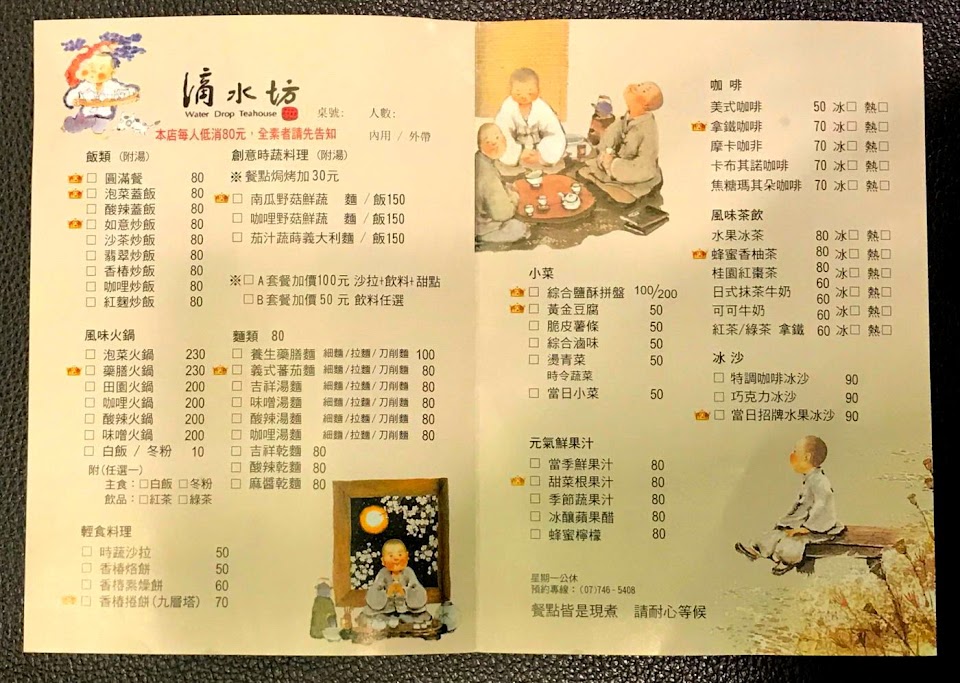 滴水坊
Water Drop Teahouse
桌號: 人數:
本店每人低消80元，全素者請先告知
內用 / 外帶
飯類 (附湯)
□ 圓滿餐 80
□ 泡菜蓋飯 80
□ 酸辣蓋飯 80
□ 如意炒飯 80
□ 沙茶炒飯 80
□ 翡翠炒飯 80
□ 香椿炒飯 80
□ 咖哩炒飯 80
□ 紅麴炒飯 80
風味火鍋
□ 泡菜火鍋 230
□ 藥膳火鍋 230
□ 田園火鍋 200
□ 咖哩火鍋 200
□ 酸辣火鍋 200
□ 味噌火鍋 200
□ 白飯 / 冬粉 10
附(任選一)
主食：□白飯 □冬粉
飲品：□紅茶 □綠茶
輕食料理
□ 時蔬沙拉 50
□ 香椿烙餅 50
□ 香椿素燥餅 60
□ 香椿捲餅(九層塔) 70
創意時蔬料理 (附湯)
※ 餐點焗烤加30元
□ 南瓜野菇鮮蔬 麵 / 飯150
□ 咖哩野菇鮮蔬 麵 / 飯150
□ 茄汁蔬蒔義大利麵 / 飯150
※□A套餐加價100元 沙拉+飲料+甜點
□B套餐加價50元 飲料任選
麵類 80
□ 養生藥膳麵 細麵/拉麵/刀削麵 100
□ 義式蕃茄麵 細麵/拉麵/刀削麵 80
□ 吉祥湯麵 細麵/拉麵/刀削麵 80
□ 味噌湯麵 細麵/拉麵/刀削麵 80
□ 酸辣湯麵 細麵/拉麵/刀削麵 80
□ 咖哩湯麵 細麵/拉麵/刀削麵 80
□ 吉祥乾麵 80
□ 酸辣乾麵 80
□ 麻醬乾麵 80
小菜
□ 綜合鹽酥拼盤 100/200
□ 黃金豆腐 50
□ 脆皮薯條 50
□ 綜合滷味 50
□ 燙青菜 50
時令蔬菜
□ 當日小菜 50
元氣鮮果汁
□ 當季鮮果汁 80
□ 甜菜根果汁 80
□ 季節蔬果汁 80
□ 冰釀蘋果醋 80
□ 蜂蜜檸檬 80
星期一公休
預約專線：(07)746-5408
餐點皆是現煮 請耐心等候
咖啡
美式咖啡 50 冰□ 熱□
拿鐵咖啡 70 冰□ 熱□
摩卡咖啡 70 冰□ 熱□
卡布其諾咖啡 70 冰□ 熱□
焦糖瑪其朵咖啡 70 冰□ 熱□
風味茶飲
水果冰茶 80 冰□ 熱□
蜂蜜香柚茶 80 冰□ 熱□
桂園紅棗茶 80 冰□ 熱□
日式抹茶牛奶 60 冰□ 熱□
可可牛奶 60 冰□ 熱□
紅茶/綠茶 拿鐵 60 冰□ 熱□
冰沙
□ 特調咖啡冰沙 90
□ 巧克力冰沙 90
□ 當日招牌水果冰沙 90